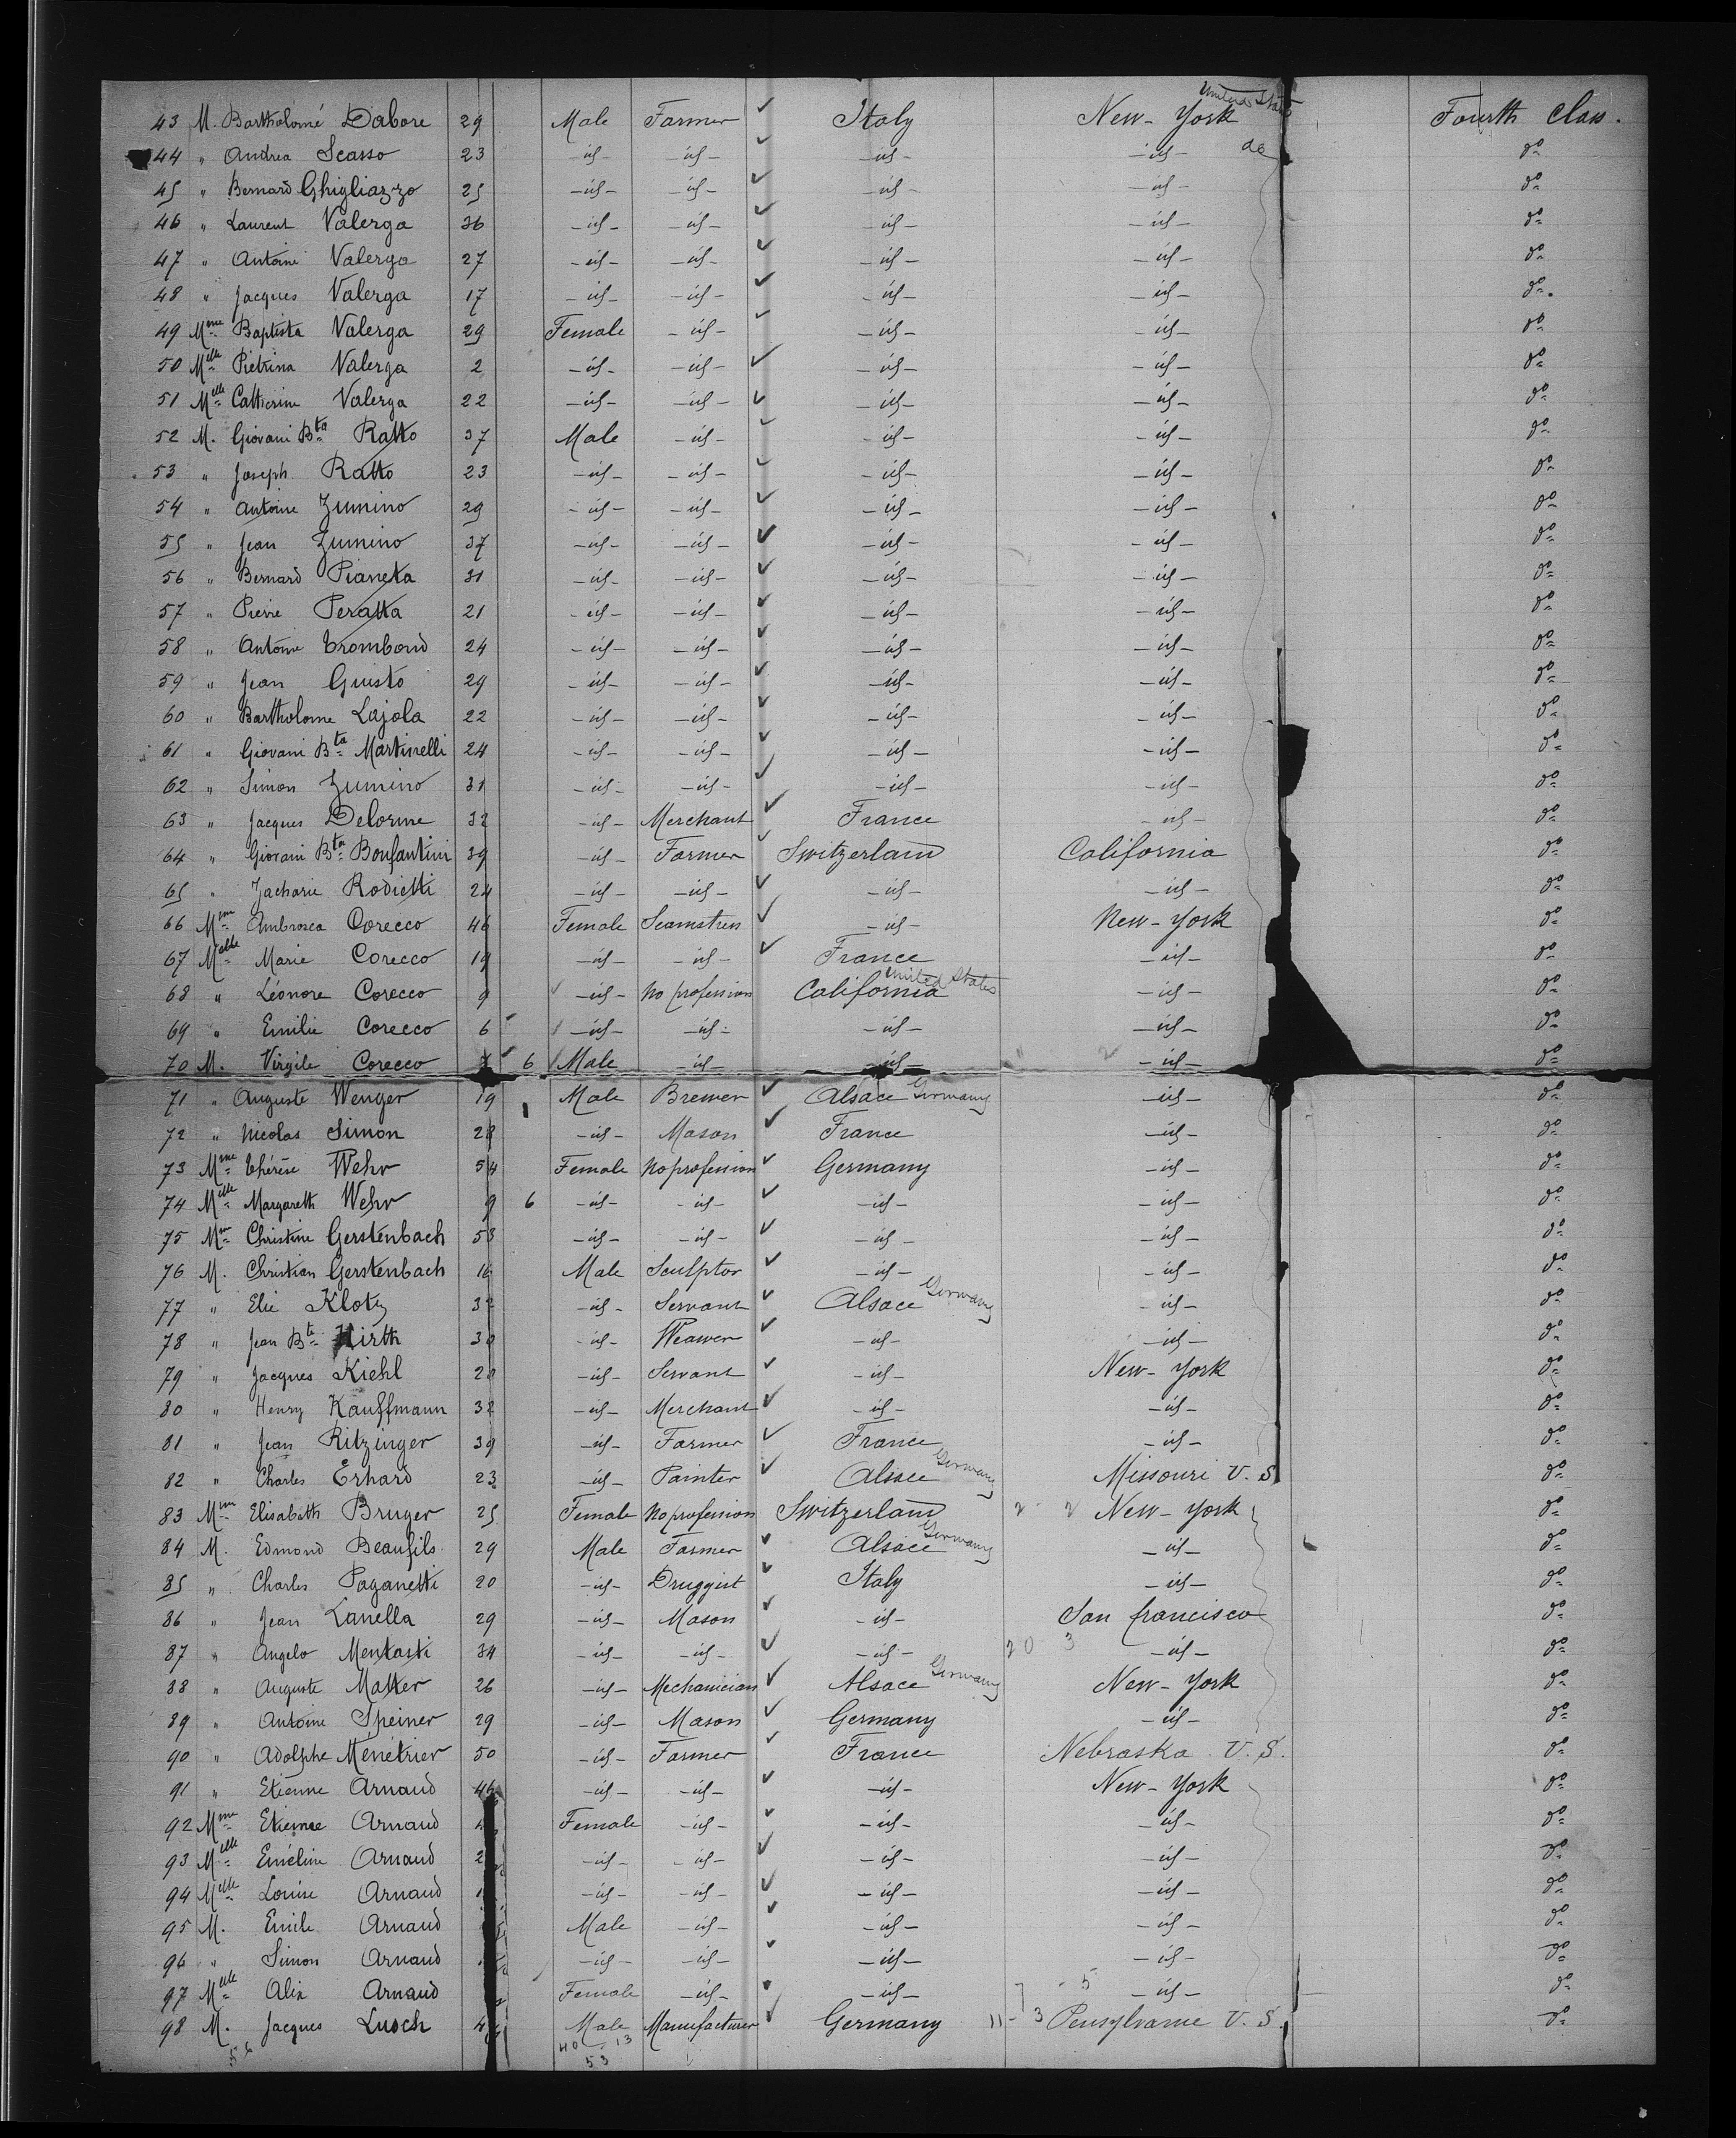 United States
43 M. Bartholomé Dabore 29 Male Farmer Italy New-York Fourth Class.
44 " Andrea Scasso 23 -id- -id- -id- -id- do do
45 " Bernard Ghigliazzo 25 -id- -id- -id- -id- do
46 " Laurent Valerga 36 -id- -id- -id- -id- do
47 " Antoine Valerga 27 -id- -id- -id- -id- do
48 " Jacques Valerga 17 -id- -id- -id- -id- do.
49 Mme Baptista Valerga 29 Female -id- -id- -id- do
50 Melle Pietrina Valerga 2 -id- -id- -id- -id- do
51 Melle Catherine Valerga 22 -id- -id- -id- -id- do
52 M. Giovani Bta Ratto 37 Male -id- -id- -id- do
53 " Joseph Ratto 23 -id- -id- -id- -id- do
54 " Antoine Zumino 29 -id- -id- -id- -id- do
55 " Jean Zumino 37 -id- -id- -id- -id- do
56 " Bernard Pianeta 31 -id- -id- -id- -id- do
57 " Pierre Peratta 21 -id- -id- -id- -id- do
58 " Antoine Trombond 24 -id- -id- -id- -id- do
59 " Jean Guisto 29 -id- -id- -id- -id- do
60 " Bartholome Lajola 22 -id- -id- -id- -id- do
61 " Giovani Bta Martinelli 24 -id- -id- -id- -id- do
62 " Simon Zumino 31 -id- -id- -id- -id- do
63 " Jacques Delorme 32 -id- Merchant France -id- do
64 " Giovani Bta Bonfantini 39 -id- Farmer Switzerland California do
65 " Zacharie Rodietti 24 -id- -id- -id- -id- do
66 Mme Ambrosea Corecco 46 Female Seamstress -id- New-York do
67 Melle Marie Corecco 19 -id- -id- France -id- do
68 " Léonore Corecco 9 -id- No profession California United States -id- do
69 " Emilie Corecco 6 -id- -id- -id- -id- do
70 M. Virgile Corecco 6 Male -id- -id- -id- do
71 " Auguste Wenger 19 Male Brewer Alsace Germany -id- do
72 " Nicolas Simon 28 -id- Mason France -id- do
73 Mme Thérèse Wehr 54 Female No profession Germany -id- do
74 Melle Margareth Wehr 9 6 -id- -id- -id- -id- do
75 Mme Christine Gerstenbach 53 -id- -id- -id- -id- do
76 M. Christian Gerstenbach 16 Male Sculptor -id- -id- do
77 " Elie Klotz 32 -id- Servant Alsace Germany -id- do
78 " Jean Bte Hirth 30 -id- Weawer -id- -id- do
79 " Jacques Kiehl 28 -id- Servant -id- New-York do
80 " Henry Kauffmann 38 -id- Merchant -id- -id- do
81 " Jean Ritzinger 39 -id- Farmer France -id- do
82 " Charles Erhard 23 -id- Painter Alsace Germany Missouri U.S. do
83 Mme Elisabeth Bruger 25 Female No profession Switzerland 2 2 New-York do
84 M. Edmond Beaufils 29 Male Farmer Alsace Germany -id- do
85 " Charles Paganetti 20 -id- Druggist Italy -id- do
86 " Jean Lanella 29 -id- Mason -id- San francisco do
87 " Angelo Mentasti 34 -id- -id- -id- 20 3 -id- do
88 " Auguste Matter 26 -id- Mechanician Alsace Germany New-York do
89 " Antoine Speiner 29 -id- Mason Germany -id- do
90 " Adolphe Menetrier 50 -id- Farmer France Nebraska U.S. do
91 " Etienne Arnaud 46 -id- -id- -id- New-York do
92 Mme Etienne Arnaud Female -id- -id- -id- do
93 Melle Emeline Arnaud 2 -id- -id- -id- -id- do
94 Melle Louise Arnaud 1 -id- -id- -id- -id- do
95 M. Emile Arnaud Male -id- -id- -id- do
96 " Simon Arnaud -id- -id- -id- -id- do
97 Melle Alix Arnaud Female -id- -id- 7 - 5 -id- do
98 M. Jacques Lusch 4 Male Manufacturer Germany 11-3 Pensylvanie U.S. do
40 13
53